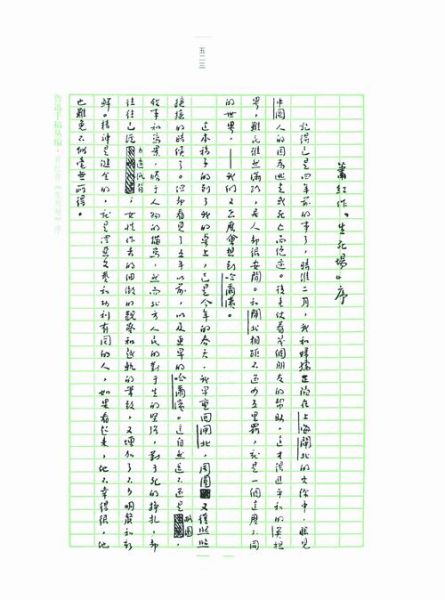 五二三
蕭紅作「生死場」序
記得已是四年前的事了，時維二月，我和婦孺正陷在上海閘北的火線中，眼見
中國人的因為逃走或死亡而絕迹。後來仗着幾個朋友的幫助，這才得進平和的英租
界，難民雖然滿路，居人卻很安閒。和閘北相距不過四五里罷，就是一個這麼不同
的世界，——我們又怎麼會想到哈爾濱。
這本稿子的到了我的桌上，已是今年的春天，我早重回閘北，周圍又復熙熙
攘攘的時候了。但卻看見了五年以前，以及更早的哈爾濱。這自然還不過是略圖，
敘事和寫景，勝於人物的描寫，然而北方人民的對於生的堅強，對於死的掙扎，卻
往往已經力透紙背；女性作者的細緻的觀察和越軌的筆致，又增加了不少明麗和新
鮮。精神是健全的，就是深惡文藝和功利有關的人，如果看起來，他不幸得很，他
也難免不能毫無所得。
鲁迅手稿丛编